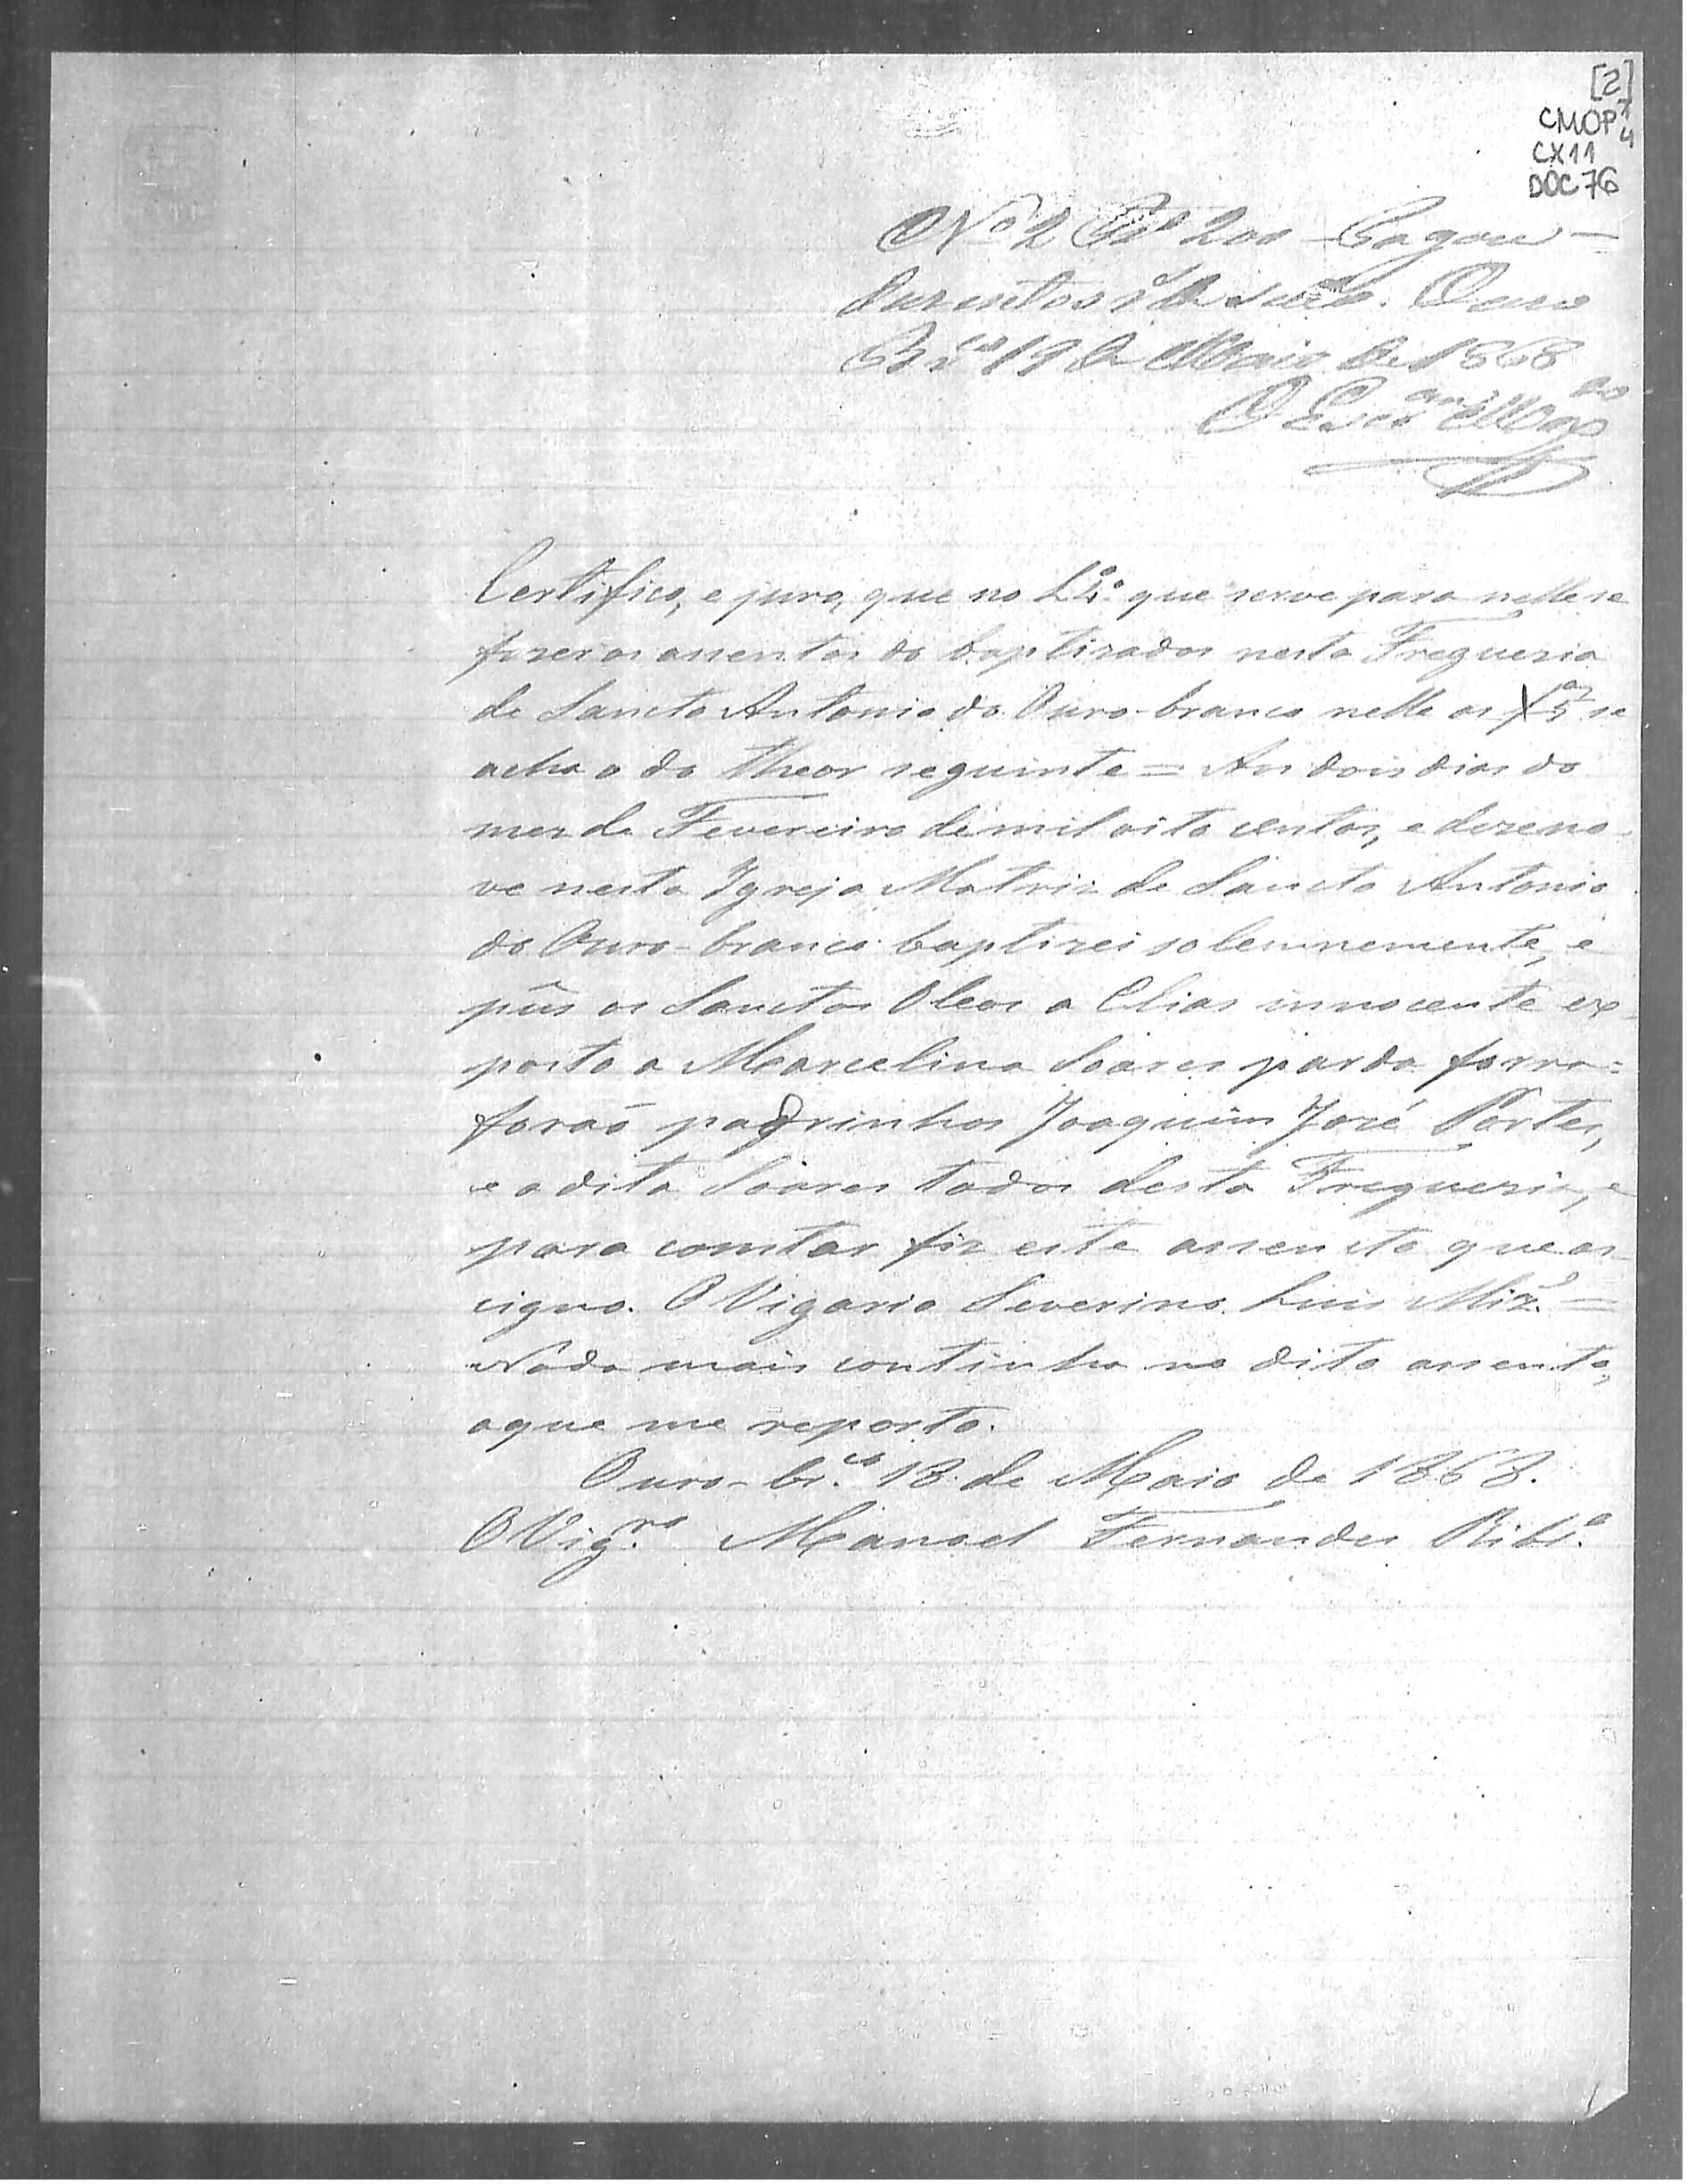 [2]
CMOP 7/4
CX11
DOC 76
Nº 2 Rs 200 Pagou
duzentos rs de sello. Ouro
Br.co 19 de Maio de 1868
O Escr.am
Certifico, e juro, que no Lº que serve para nelle se
fazer os assentos do baptisados nesta Freguesia
de Sancto Antonio do Ouro-branco nelle as se
acha o do theor seguinte = Aos dois dias do
mez de Fevereiro de mil oito centos, e dezeno-
ve nesta Igreja Matriz de Sancto Antonio
do Ouro-branco baptizei solemnemente, e
pûs os Sanctos Oleos a Elias innocente ex-
posto a Marcelina Soares parda forra:
forão padrinhos Joaquim José Portes,
e a dita Soares todos desta Freguesia, e
para constar fiz este assento que as-
signo. O Vigario Severino Luis =
Nada mais continha no dito assento,
a que me reporto.
Ouro-br.co 18 de Maio de 1868.
O Vig.ro Manoel Fernandes Rib.o